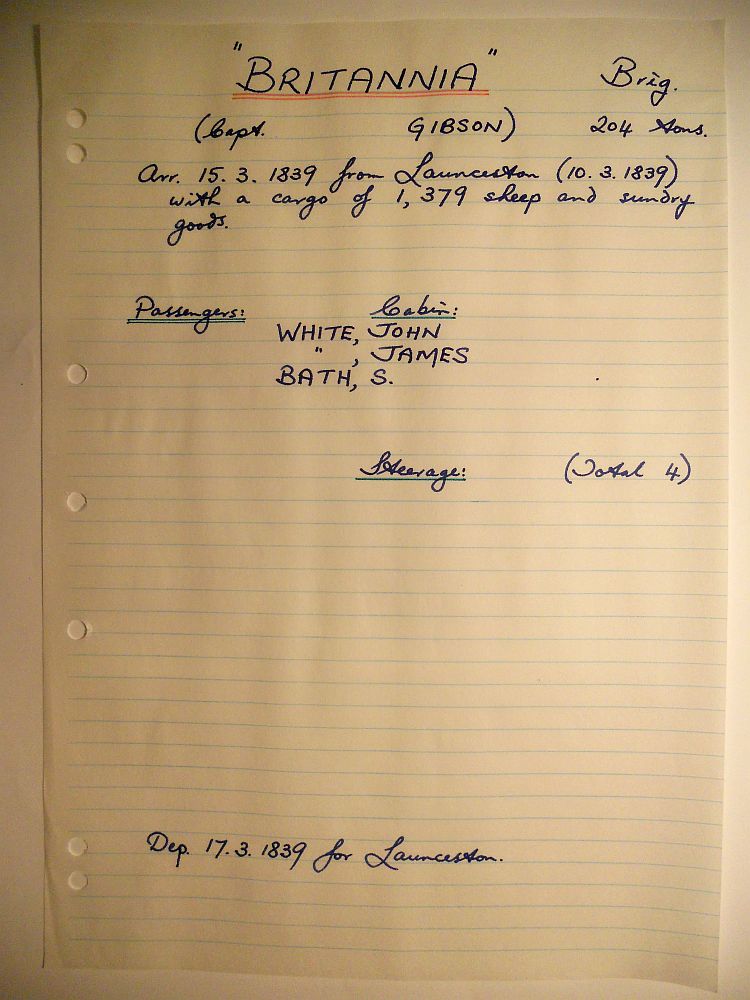 "BRITANNIA" Brig.
(Capt. GIBSON) 204 tons.
Arr. 15. 3. 1839 from Launceston (10. 3. 1839)
with a cargo of 1,379 sheep and sundry
goods.
Passengers: Cabin:
WHITE, JOHN
" , JAMES
BATH, S.
Steerage: (Total 4)
Dep. 17. 3. 1839 for Launceston.